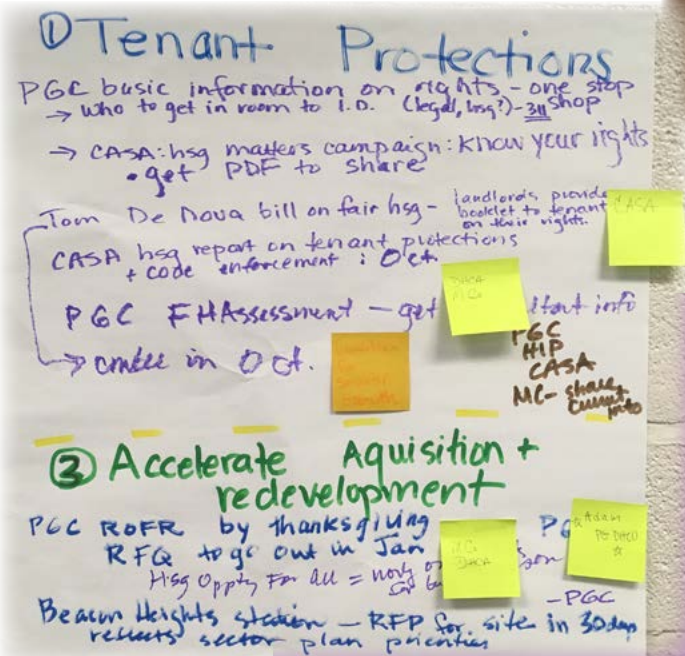 ① Tenant Protections
PGC basic information on rights - one stop
→ who to get in room to I.D. (legal, hsg?) - 311 shop
→ CASA: hsg matters campaign: Know your rights
• get PDF to share
Tom De Nova bill on fair hsg - landlords provide
booklet to tenant
on their rights.
CASA
CASA hsg report on tenant protections
+ code enforcement : Oct.
DHCA
MC
PGC FHAssessment - get info
→ cmtee in Oct.
Coalition
for
Smarter
Growth
PGC
HIP
CASA
MC - share
current
info
③ Accelerate Aquisition +
redevelopment
PGC ROFR by thanksgiving
RFQ to go out in Jan
MC
DHCA
Adam
PG DHCD
Hsg Oppty For All =
- PGC
Beacon Heights station - RFP for site in 30 days
reflects sector plan priorities